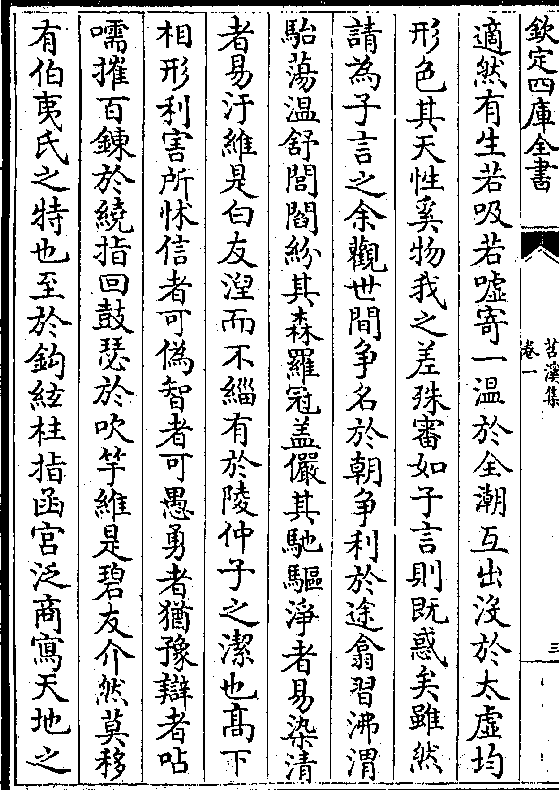 欽定四庫全書
苕溪集
卷一
三
適然有生若吸若噓寄一温於全潮互出没於太虚均
形色其天性奚物我之差殊審如子言則既惑矣雖然
請為子言之余觀世間争名於朝争利於途翕習沸渭
駘蕩温舒閭閻紛其森羅冠盖儼其馳驅淨者易染清
者易汙維是白友湼而不緇有於陵仲子之潔也髙下
相形利害所怵信者可偽智者可愚勇者猶豫辯者呫
嚅摧百鍊於繞指回鼓瑟於吹竽維是碧友介然莫移
有伯夷氏之特也至於鈎絃柱指函宫泛商寫天地之